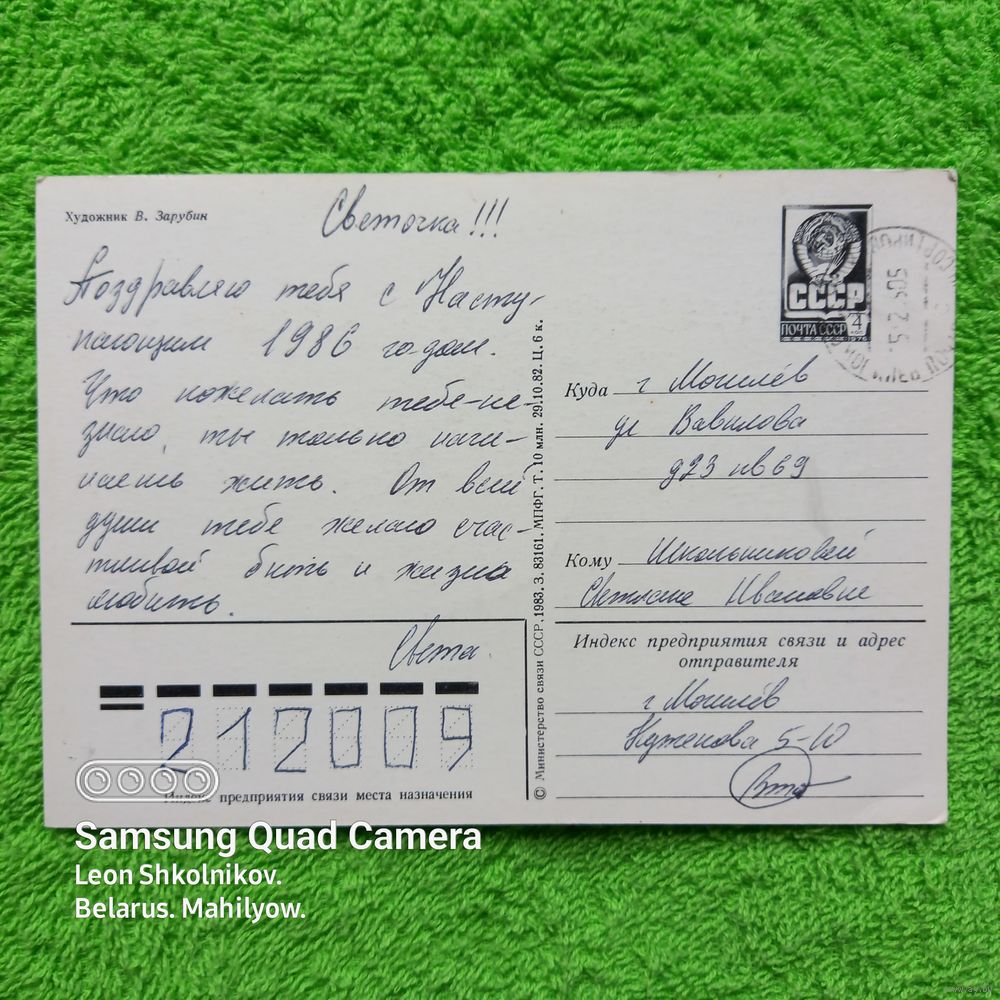 Художник В. Зарубин
Светочка!!!
Поздравляю тебя с Насту-
пающим 1986 годом.
Что пожелать тебе-не-
знаю, ты только начи-
наешь жить. От всей
души тебе желаю счас-
тливой быть и жизнь
любить.
Света.
212009
Индекс предприятия связи места назначения
© Министерство связи СССР, 1983. З. 83161. МПФГ. Т. 10 млн. 29.10.82. Ц. 6 к.
СССР
ПОЧТА СССР
4
КОП
1976
Куда г Могилёв
ул Вавилова
д23 кв69
Кому Школьниковой
Светлане Ивановне
Индекс предприятия связи и адрес
отправителя
г Могилёв
5-10
Samsung Quad Camera
Leon Shkolnikov.
Belarus. Mahilyow.